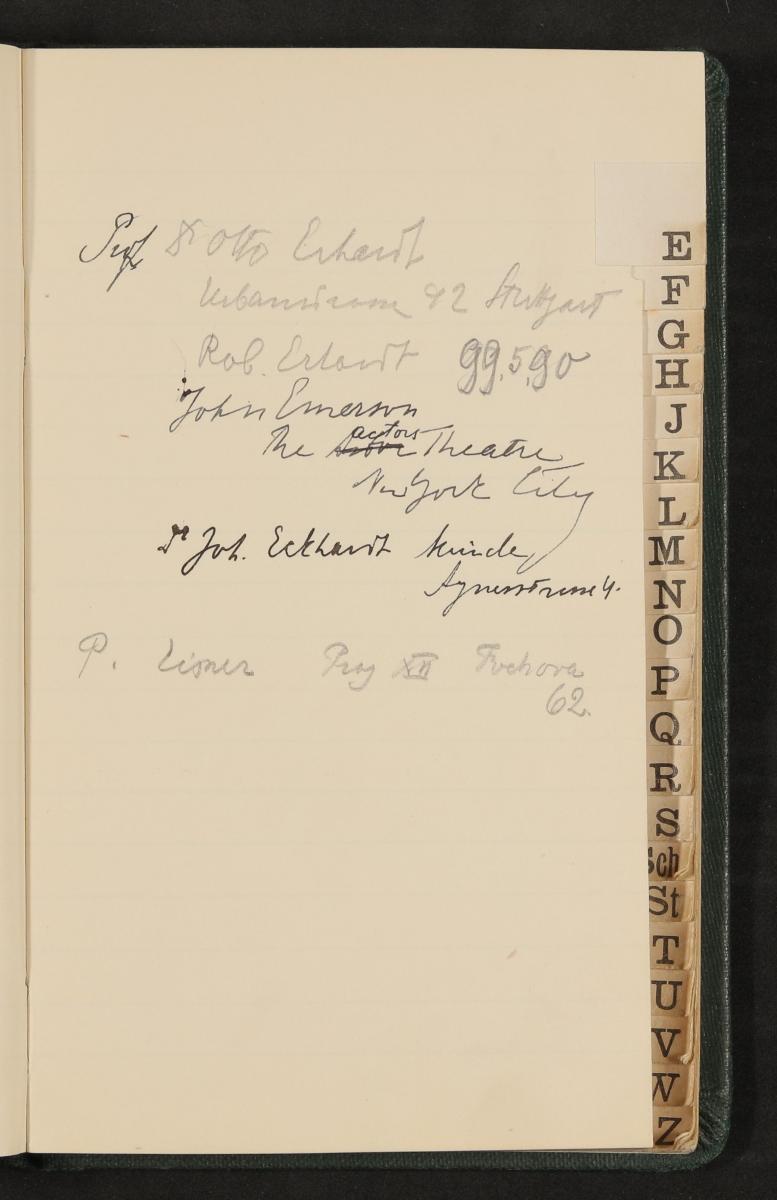 Prof Dr Otto Erhardt
Urbanstrasse 82 Stuttgart
Rob. Erhardt 99.5.90
John Emerson
The actors Theatre
New York City
Dr Joh. Eckhardt
Agnesstrasse 4.
P. Eisner Prag XII Fochova
62.
E
F
G
H
J
K
L
M
N
O
P
Q
R
S
Sch
St
T
U
V
W
Z